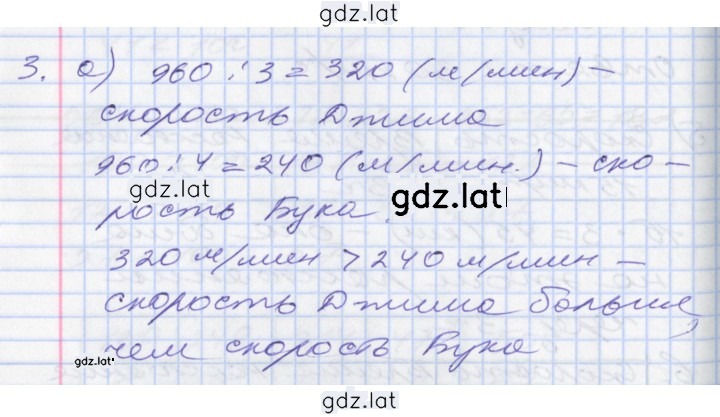 gdz.lat
3. а) 960 : 3 = 320 (м/мин) –
скорость Джима
960 : 4 = 240 (м/мин.) – ско –
gdz.lat
gdz.lat
рость Бука.
320 м/мин > 240 м/мин –
скорость Джима больше,
чем скорость Бука
gdz.lat
gdz.lat